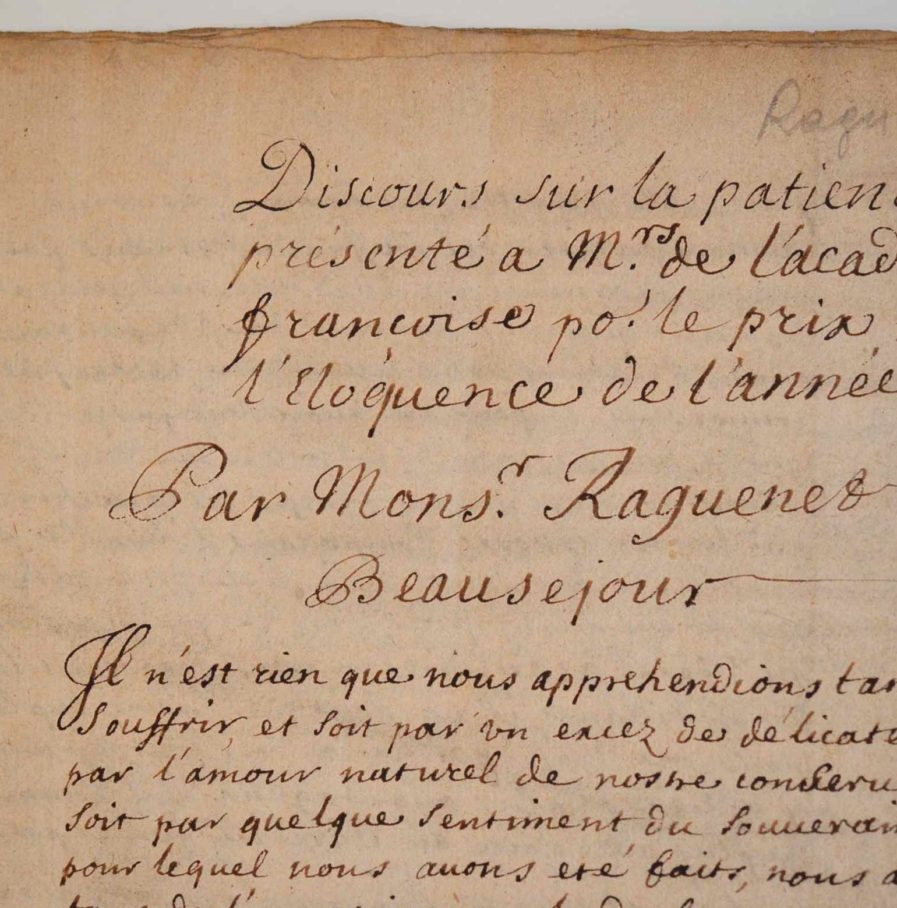 Ragu
Discours sur la patien
présenté a M.rs de l'acad
francoise po.r le prix
l'Eloquence de l'année
Par Mons.r Raguenet
Beausejour
Il n'est rien que nous apprehendions tan
souffrir, et soit par un excez de délicate
par l'amour naturel de nostre conseru
soit par quelque sentiment du souuerain
pour lequel nous auons eté faits, nous a